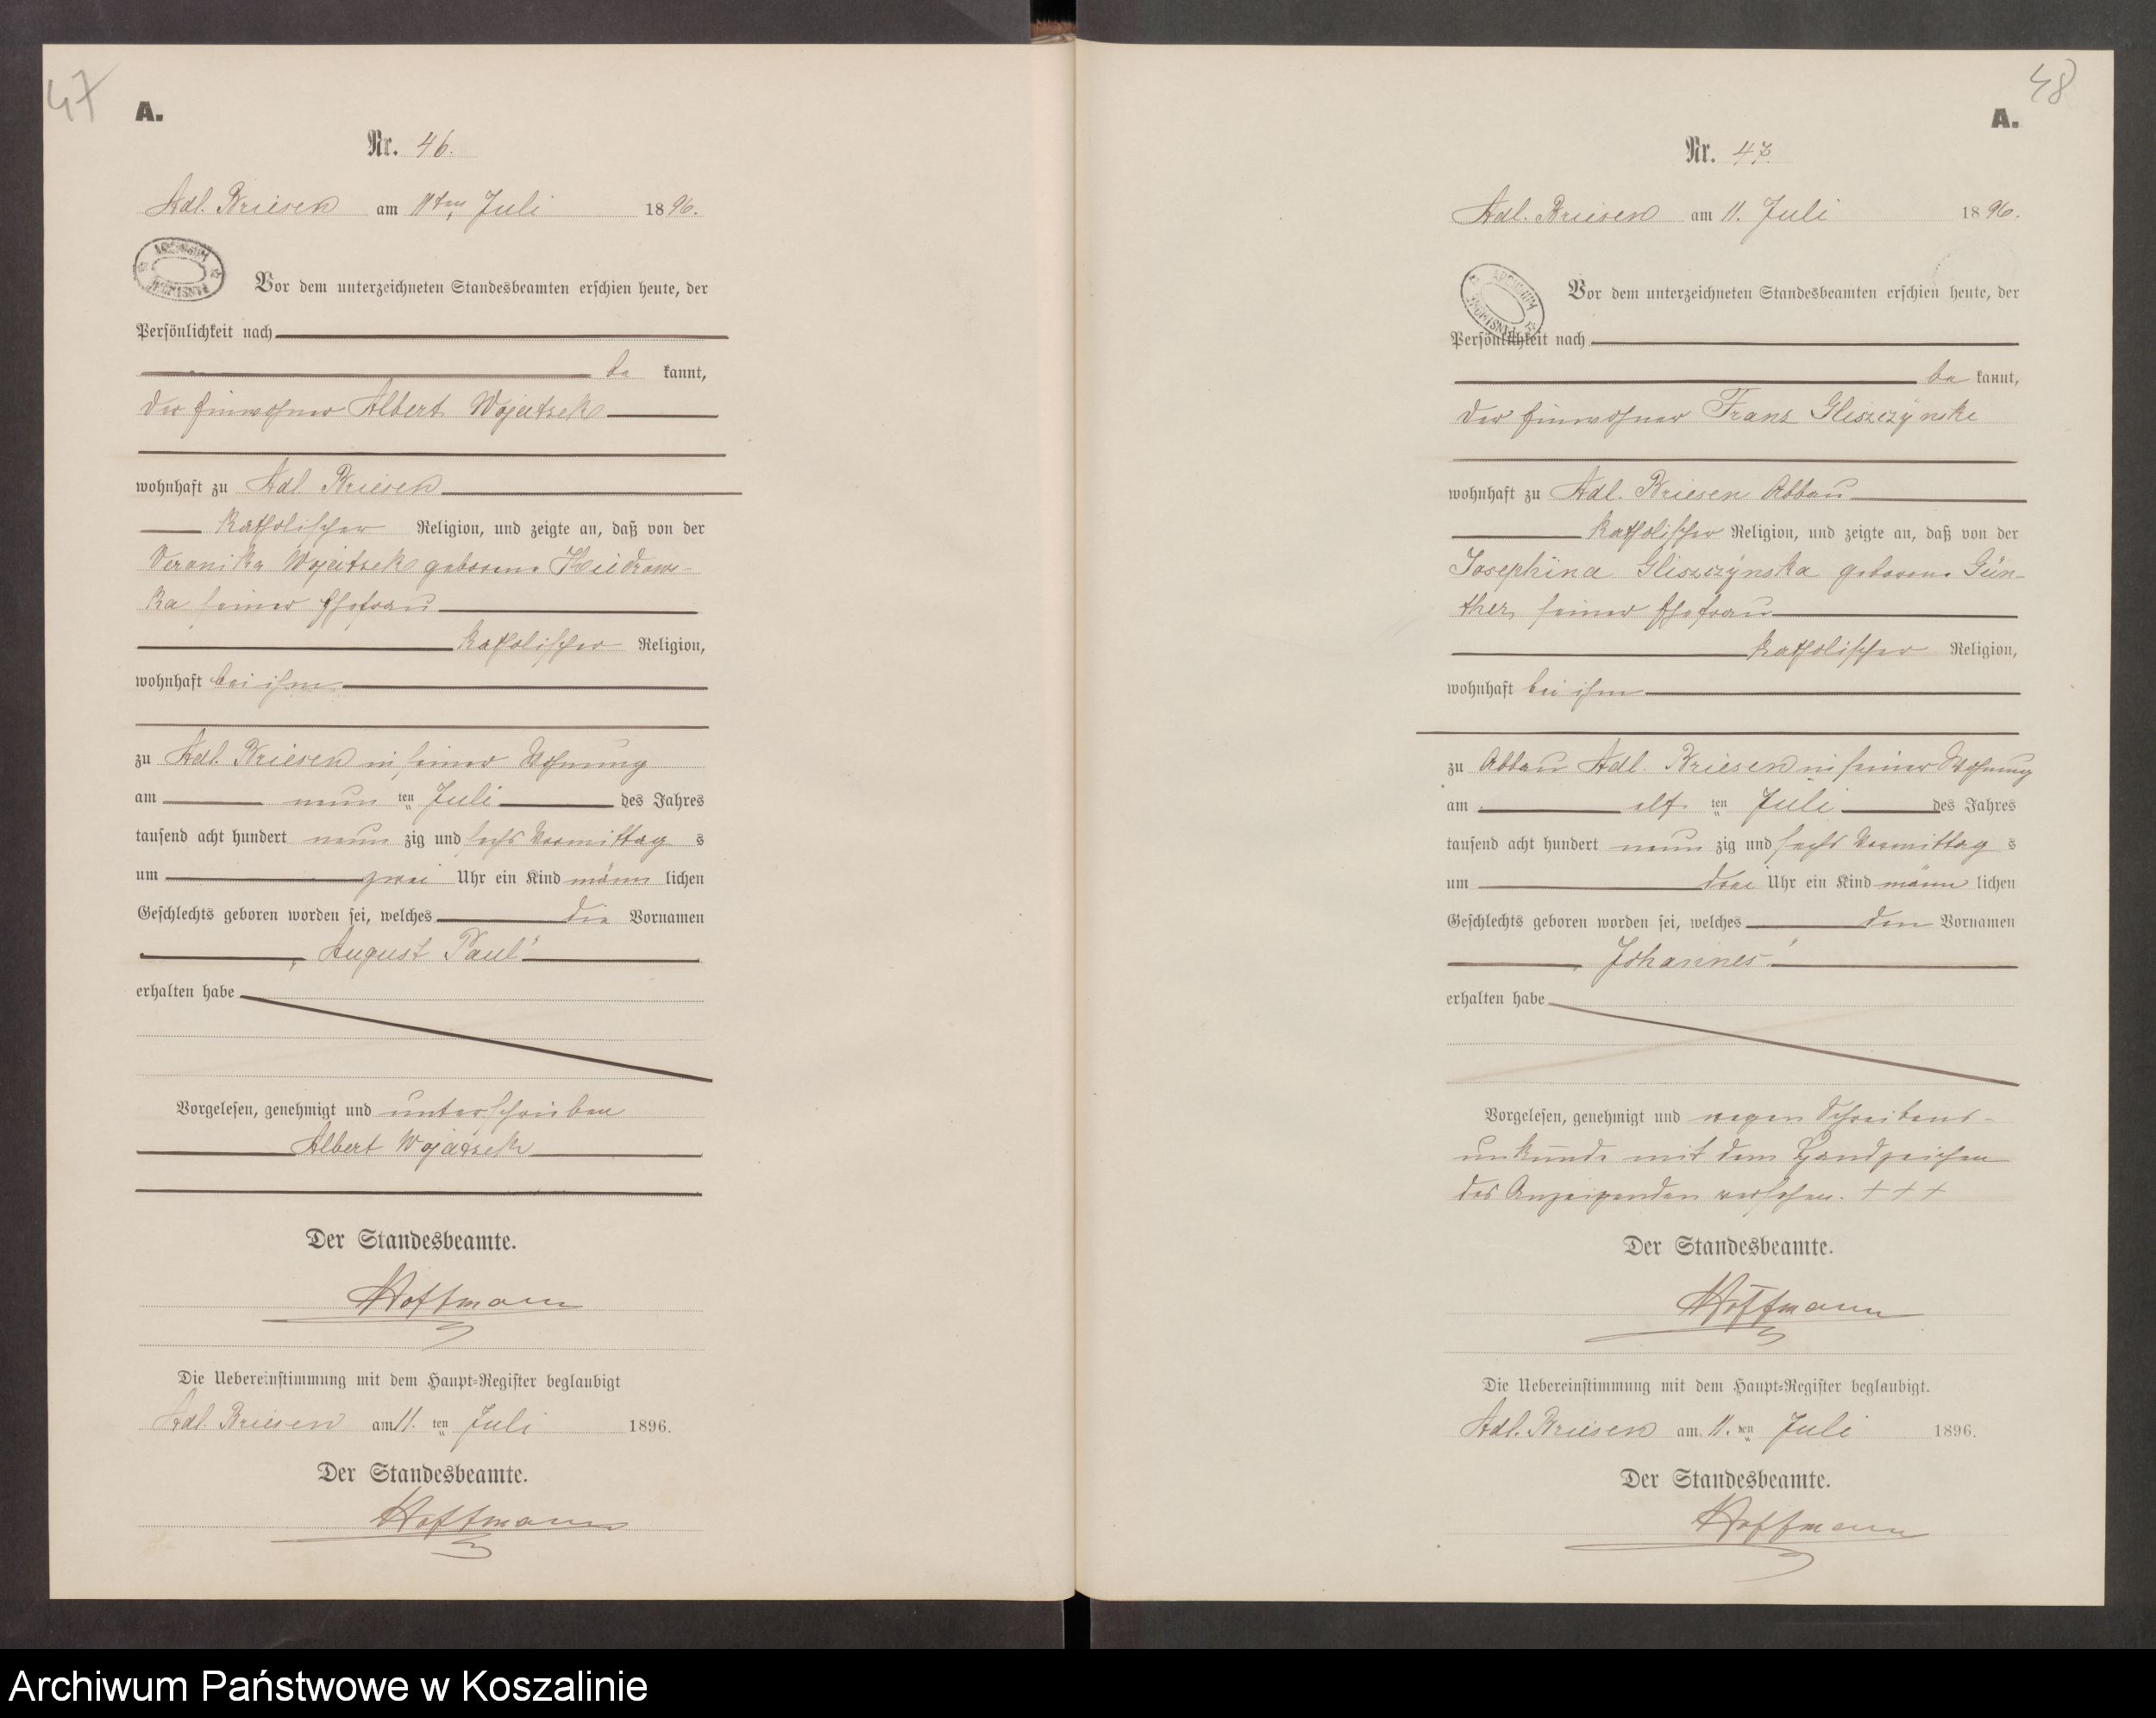 47
A.
Nr. 46.
Adl. Briesen am 11ten Juli 1896.
ARCHIWUM
PAŃSTWOWE
Vor dem unterzeichneten Standesbeamten erschien heute, der
Persönlichkeit nach
be kannt,
der Einwohner Albert Wojcitzek
wohnhaft zu Adl. Briesen
katholischer Religion, und zeigte an, daß von der
Veronika geborene
ka seiner Ehefrau
katholischer Religion,
wohnhaft bei ihm
zu Adl. Briesen in seiner Wohnung
am neun ten Juli des Jahres
tausend acht hundert neun zig und sechs Vormittag s
um zwei Uhr ein Kind männ lichen
Geschlechts geboren worden sei, welches die Vornamen
„August Paul“
erhalten habe
Vorgelesen, genehmigt und unterschrieben
Albert
Der Standesbeamte.
Hoffmann
Die Uebereinstimmung mit dem Haupt=Register beglaubigt
Adl. Briesen am 11. ten Juli 1896.
Der Standesbeamte.
Hoffmann
48
A.
Nr. 47.
Adl. Briesen am 11. Juli 1896.
ARCHIWUM
PAŃSTWOWE
Vor dem unterzeichneten Standesbeamten erschien heute, der
Persönlichkeit nach
be kannt,
der Einwohner Franz Gliszczynski
wohnhaft zu Adl. Briesen Abbau
katholischer Religion, und zeigte an, daß von der
Josephina Gliszczynska geborene Gün-
ther, seiner Ehefrau
katholischer Religion,
wohnhaft bei ihm
zu Abbau Adl. Briesen in seiner Wohnung
am elf ten Juli des Jahres
tausend acht hundert neun zig und sechs Vormittag s
um drei Uhr ein Kind männ lichen
Geschlechts geboren worden sei, welches den Vornamen
„Johannes“
erhalten habe
Vorgelesen, genehmigt und wegen Schreibens-
unkunde mit dem Handzeichen
des Anzeigenden versehen. + + +
Der Standesbeamte.
Hoffmann
Die Uebereinstimmung mit dem Haupt=Register beglaubigt.
Adl. Briesen am 11. ten Juli 1896.
Der Standesbeamte.
Hoffmann
Archiwum Państwowe w Koszalinie